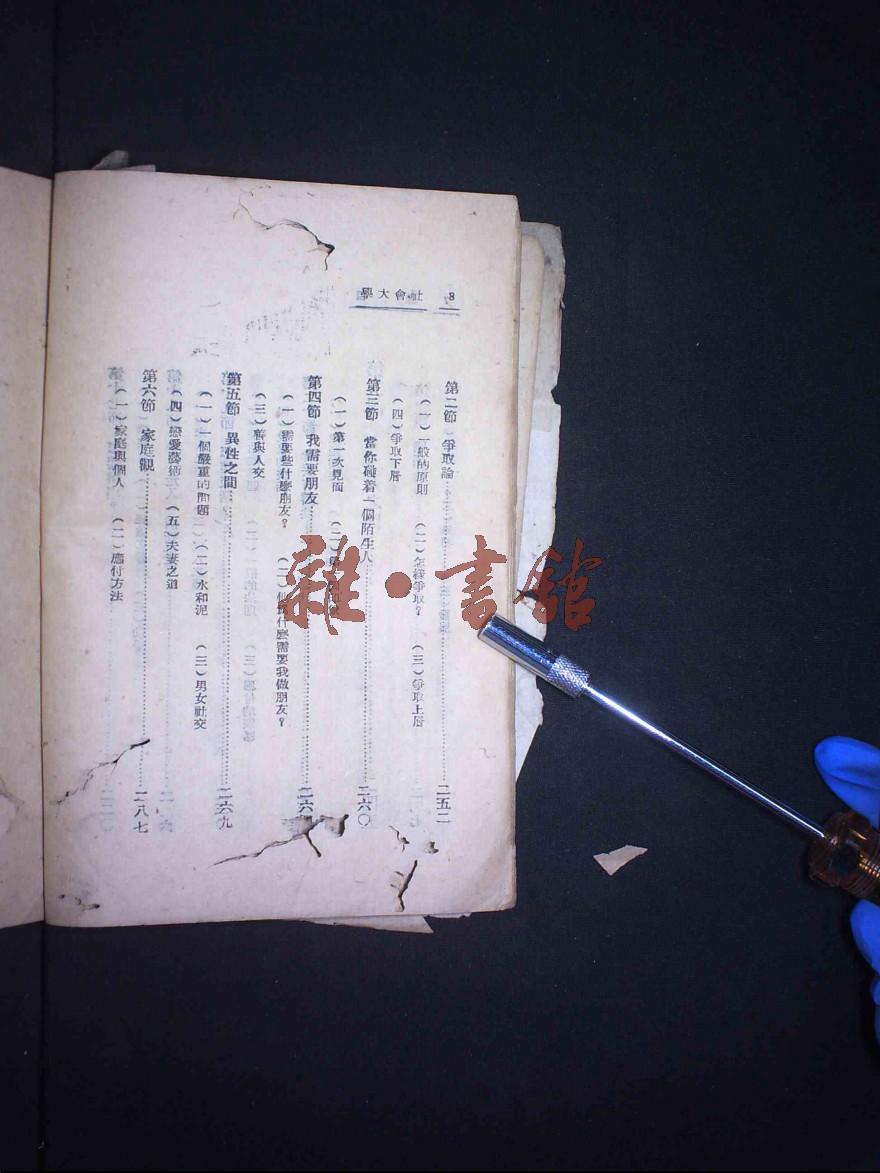 8 社會大學
第二節 爭取論……二五二
(一)一般的原則 (二)怎樣爭取? (三)爭取上層
(四)爭取下層
第三節 當你碰着一個陌生人……二六〇
(一)第一次見面 (二)
第四節 我需要朋友……二六
(一)需要些什麼朋友? (二)他為什麼需要我做朋友?
(三)善與人交
第五節 異性之間……二六九
(一)一個嚴重的問題 (二)水和泥 (三)男女社交
(四)戀愛藝術 (五)夫妻之道
第六節 家庭觀……二八七
(一)家庭與個人 (二)應付方法
雜·書館